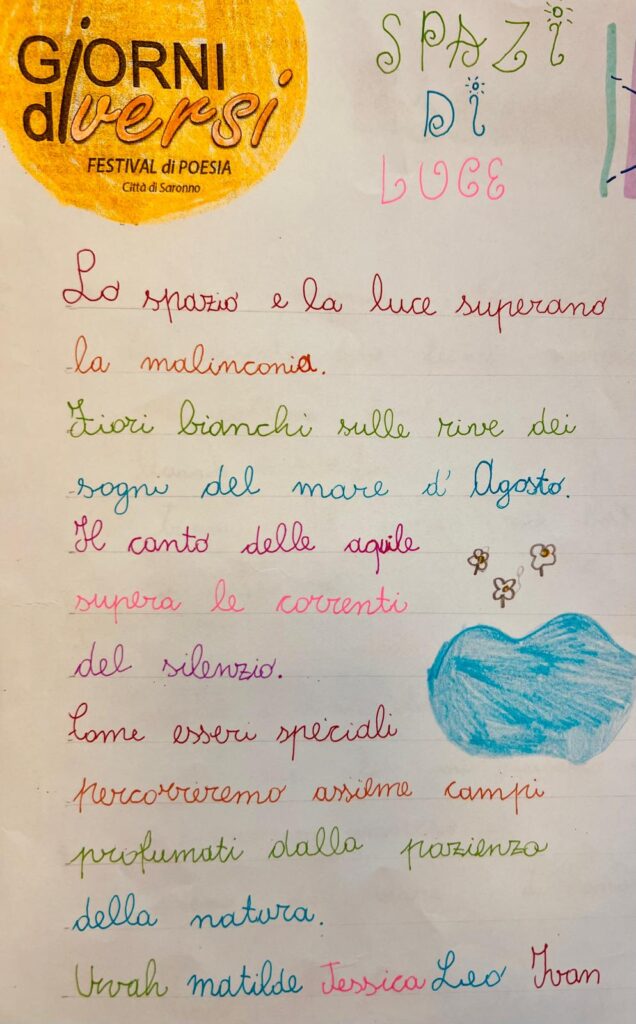 GiORNI
diversi
FESTIVAL di POESIA
Città di Saronno
SPAZI
DI
LUCE
Lo spazio e la luce superano
la malinconia.
Fiori bianchi sulle rive dei
sogni del mare d' Agosto.
Il canto delle aquile
supera le correnti
del silenzio.
Come esseri speciali
percorreremo assieme campi
profumati dalla pazienza
della natura.
matilde Jessica Leo Ivan